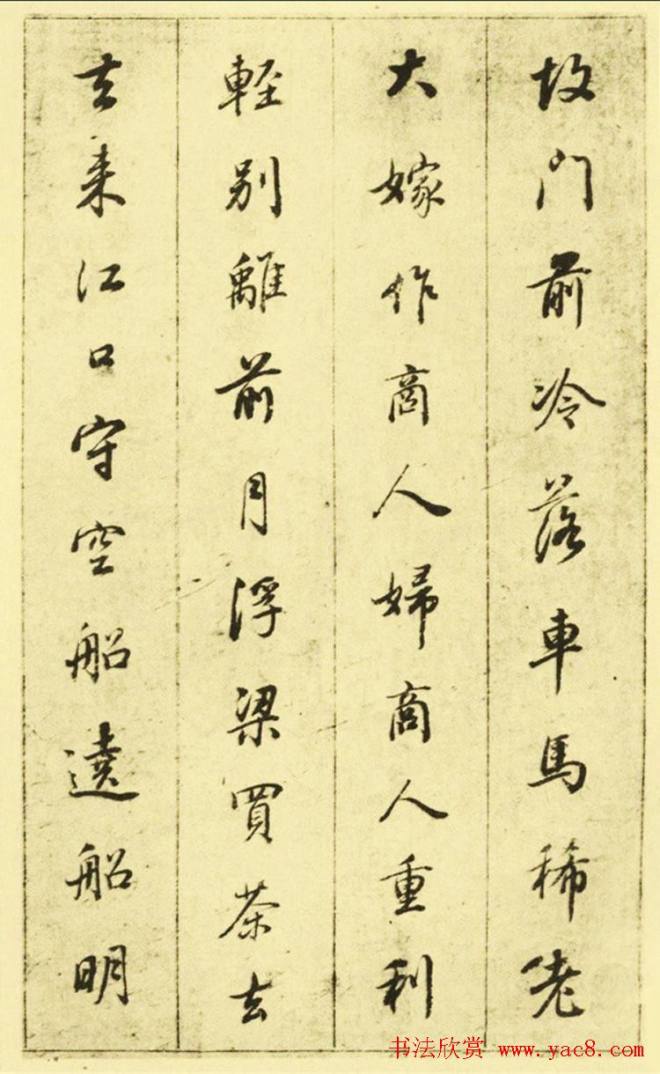 故門前冷落車馬稀老
大嫁作商人婦商人重利
輕別離前月浮梁買茶去
去來江口守空船遶船明
书法欣赏 www.yac8.com